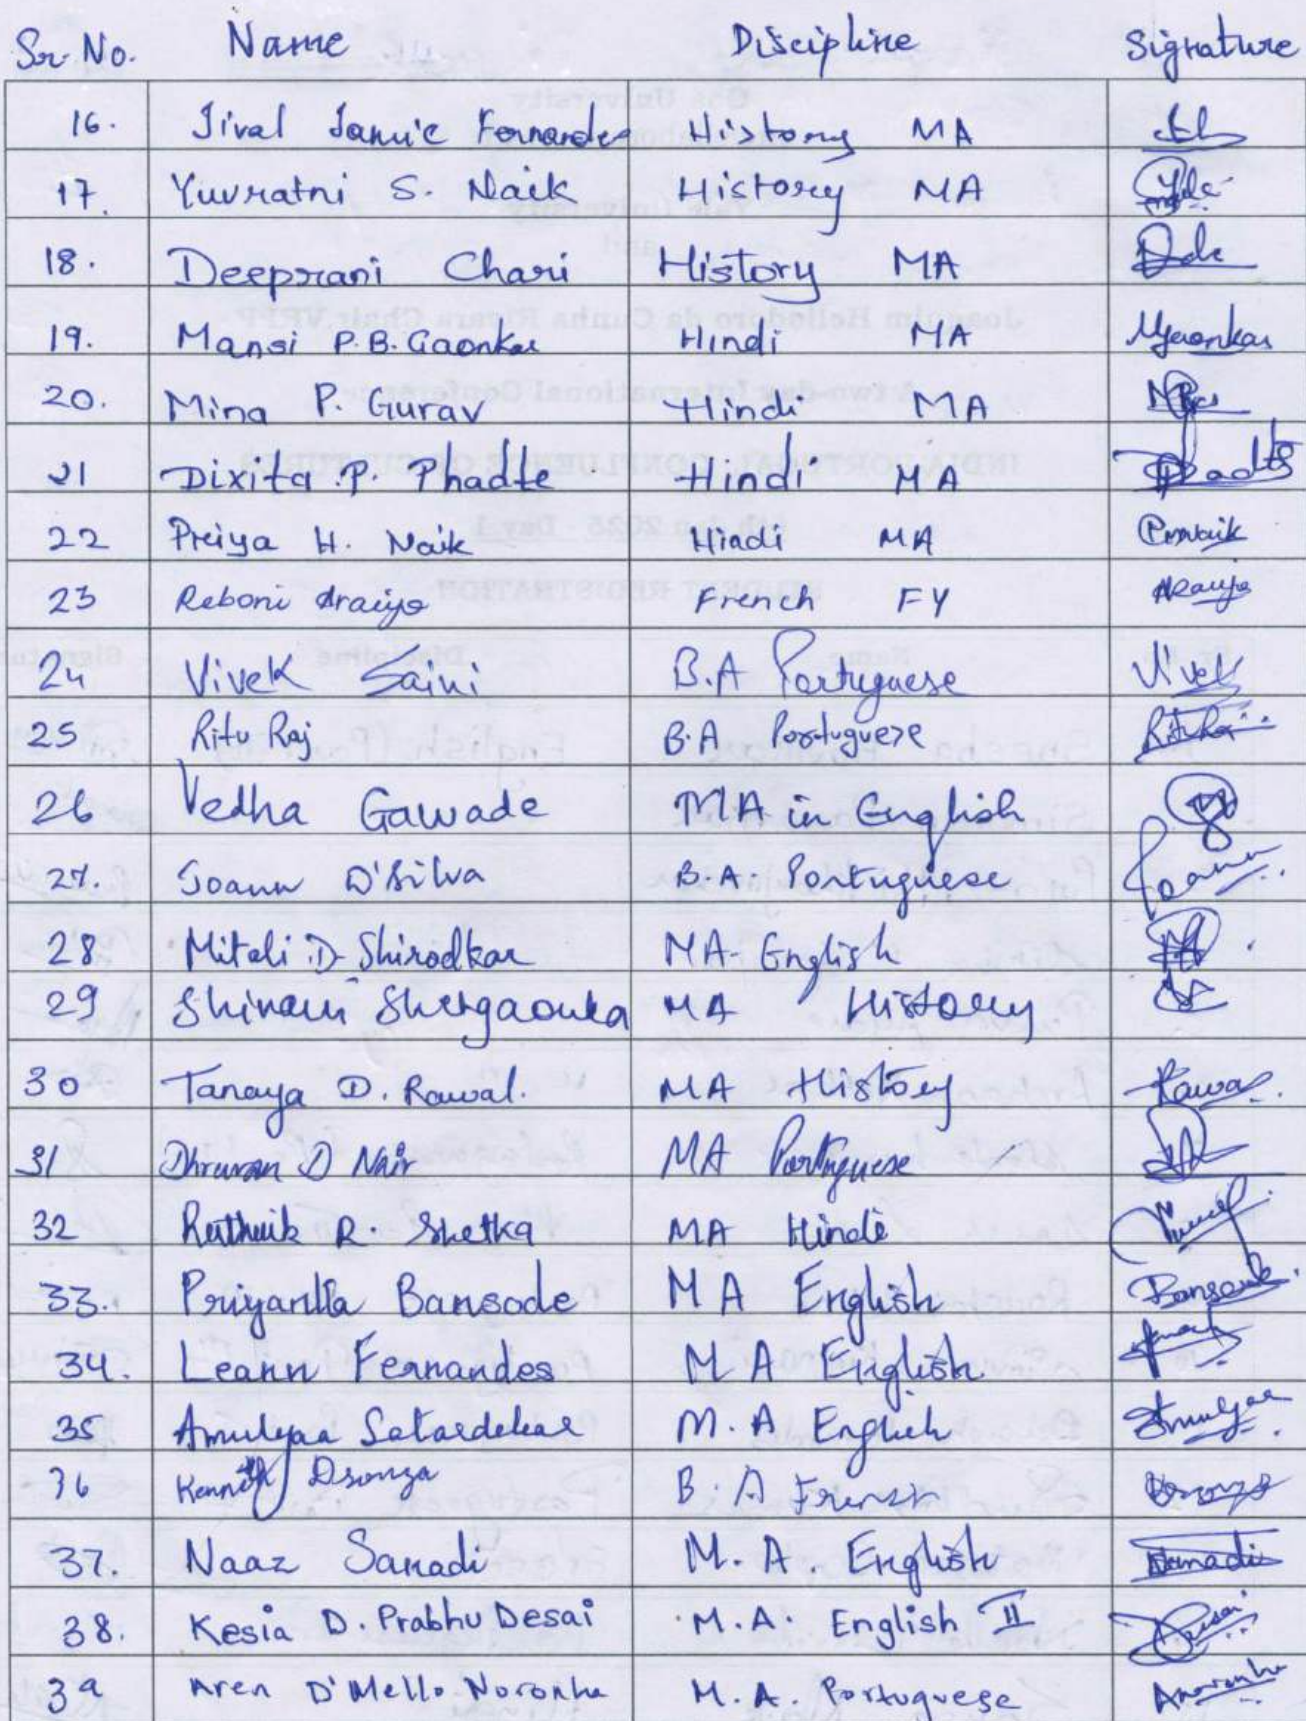 Sr. No. Name Discipline Signature
16. Jival Jamie Fernandes History MA
17. Yuvratni S. Naik History MA
18. Deeprani Chari History MA
19. Mansi P.B. Gaonkar Hindi MA Mgaonkar
20. Mina P. Gurav Hindi MA
21 Dixita P. Phadte Hindi MA Phadte
22 Priya H. Naik Hindi MA
23 Reboni Araujo French FY Araujo
24 Vivek Saini B.A Portuguese Vivek
25 Ritu Raj B.A Portuguese RituRaj
26 Vedha Gawade MA in English
27. Joann D'Silva B.A. Portuguese Joann
28. Mitali D. Shirodkar MA- English
29 Shivani Shirgaonka MA History
30 Tanaya D. Rawal. MA History Rawal
31 D Nair MA Portuguese
32 R. Shetka MA Hindi
33. Priyanka Bansode MA English Bansode
34. Leann Fernandes M A English
35 Amulyaa Satardekar M. A English Amulyaa
36 Kenneth Dsouza B. A French Dsouza
37. Naaz Sanadi M. A. English Sanadi
38. Kesia D. Prabhu Desai M.A. English II Desai
39 Aren D'Mello Noronha M.A. Portuguese Anoronha